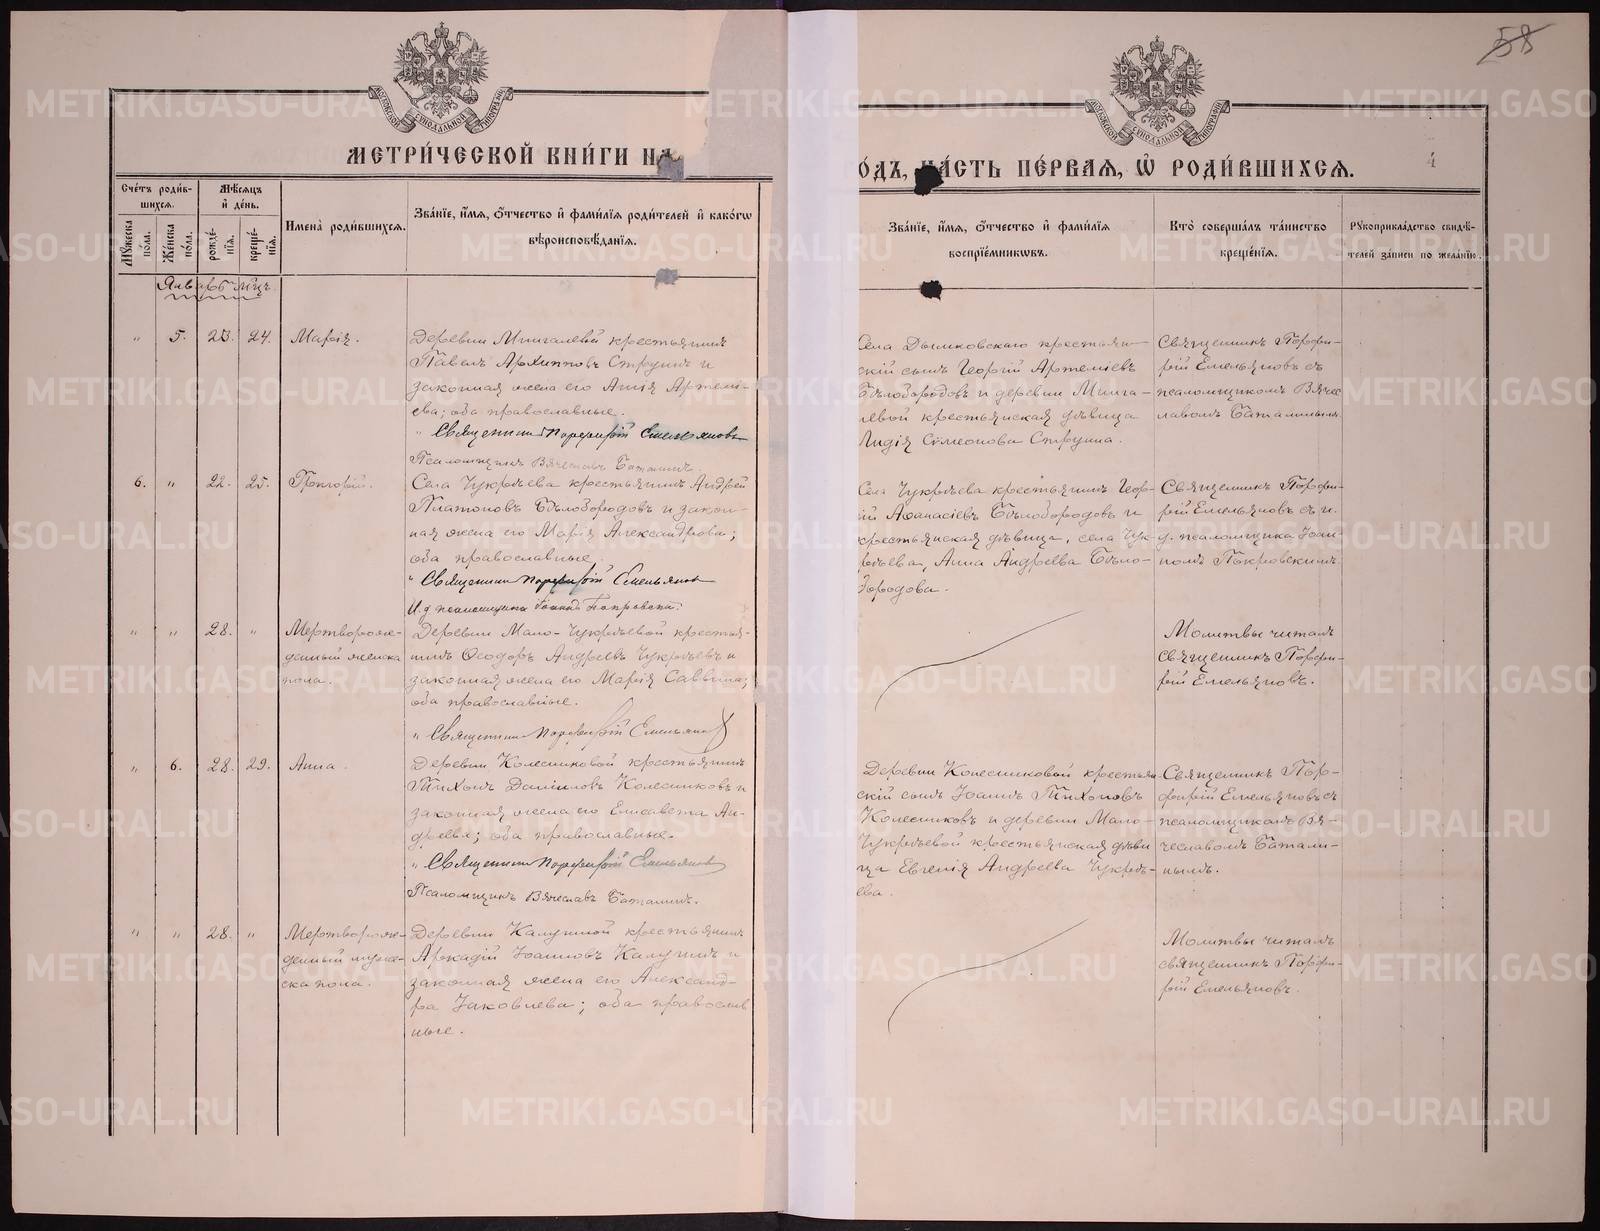 58
МОСКОВСКОЙ СѴНОДАЛЬНОЙ ТИПОГРАФІИ
МОСКОВСКОЙ СѴНОДАЛЬНОЙ ТИПОГРАФІИ
МЕТРИ́ЧЕСКОЙ КНИ́ГИ НА
ОДЪ, ЧА́СТЬ ПЕ́РВАЯ, Ѽ РОДИ́ВШИХСЯ.
4
Сче́тъ роди́в-
шихся.
Мѣ́сяцъ
и҆ де́нь.
Мꙋ́жеска по́ла.
Же́нска по́ла.
рожде́-
нїя.
креще́-
нїя.
И҆мена̀ роди́вшихся.
Зва́нїе, и҆́мя, ѻ҆́тчество и҆ фами́лїя роди́телей и҆ како́гѡ
вѣроисповѣ́данїя.
Зва́нїе, и҆́мя, ѻ҆́тчество и҆ фами́лїя
воспрїе́мникѡвъ.
Кто̀ соверша́лъ та́инство
креще́нїя.
Рꙋкоприкла́дство свидѣ́-
телей за́писи по жела́нїю.
Январь мѣц.
" 5. 23. 24. Марія.
Деревни Мингалевой крестьянинъ
Павелъ Архиповъ Струинъ и
законная жена его Анна Артемі-
ева; оба православные.
" Священникъ Порфирій Емельяновъ
Псаломщикъ Вячеславъ Баталинъ.
Села Дымковскаго крестьян-
скій сынъ Георгій Артеміевъ
Бѣлобородовъ и деревни Минга-
левой крестьянская дѣвица
Лидія Сѵмеонова Струина.
Священникъ Порфи-
рій Емельяновъ съ
псаломщикомъ Вячес-
лавомъ Баталинымъ
6. " 22. 25. Григорій.
Села Чукрѣева крестьянинъ Андрей
Платоновъ Бѣлобородовъ и закон-
ная жена его Марія Александрова;
оба православные
" Священникъ Порфирій Емельяновъ
И.д псаломщика Іоаннъ Покровскій.
Села Чукрѣева крестьянинъ Геор-
гій Аѳанасіевъ Бѣлобородовъ и
крестьянская дѣвица, села Чук-
рѣева, Анна Андреева Бѣло-
бородова.
Священникъ Порфи-
рій Емельяновъ съ и.
д. псаломщика Іоан-
номъ Покровскимъ
" " 28. " Мертворож-
денный женска
пола.
Деревни Мало-Чукрѣевой крестья-
нинъ Ѳеодоръ Андреевъ Чукрѣевъ и
законная жена его Марія Саввина;
оба православные.
" Священникъ Порфирій Емельяновъ
Молитвы читалъ
священникъ Порфи-
рій Емельяновъ.
" 6. 28. 29. Анна.
Деревни Колесниковой крестьянинъ
Тихонъ Даніиловъ Колесниковъ и
законная жена его Елисавета Ан-
дреева; оба православные.
" Священникъ Порфирій Емельяновъ
Псаломщикъ Вячеславъ Баталинъ.
Деревни Колесниковой крестьян-
скій сынъ Іоаннъ Тихоновъ
Колесниковъ и деревни Мало-
Чукрѣевой крестьянская дѣви-
ца Евгенія Андреева Чукрѣ-
ева.
Священникъ Пор-
фирій Емельяновъ съ
псаломщикомъ Вя-
чеславомъ Батали-
нымъ.
" " 28. " Мертворож-
денный муже-
ска пола.
Деревни Калуиной крестьянинъ
Аркадій Іоанновъ Калуинъ и
законная жена его Александ-
ра Іаковлева; оба православ
ные.
Молитвы читалъ
священникъ Порфи-
рій Емельяновъ.
METRIKI.GASO-URAL.RU